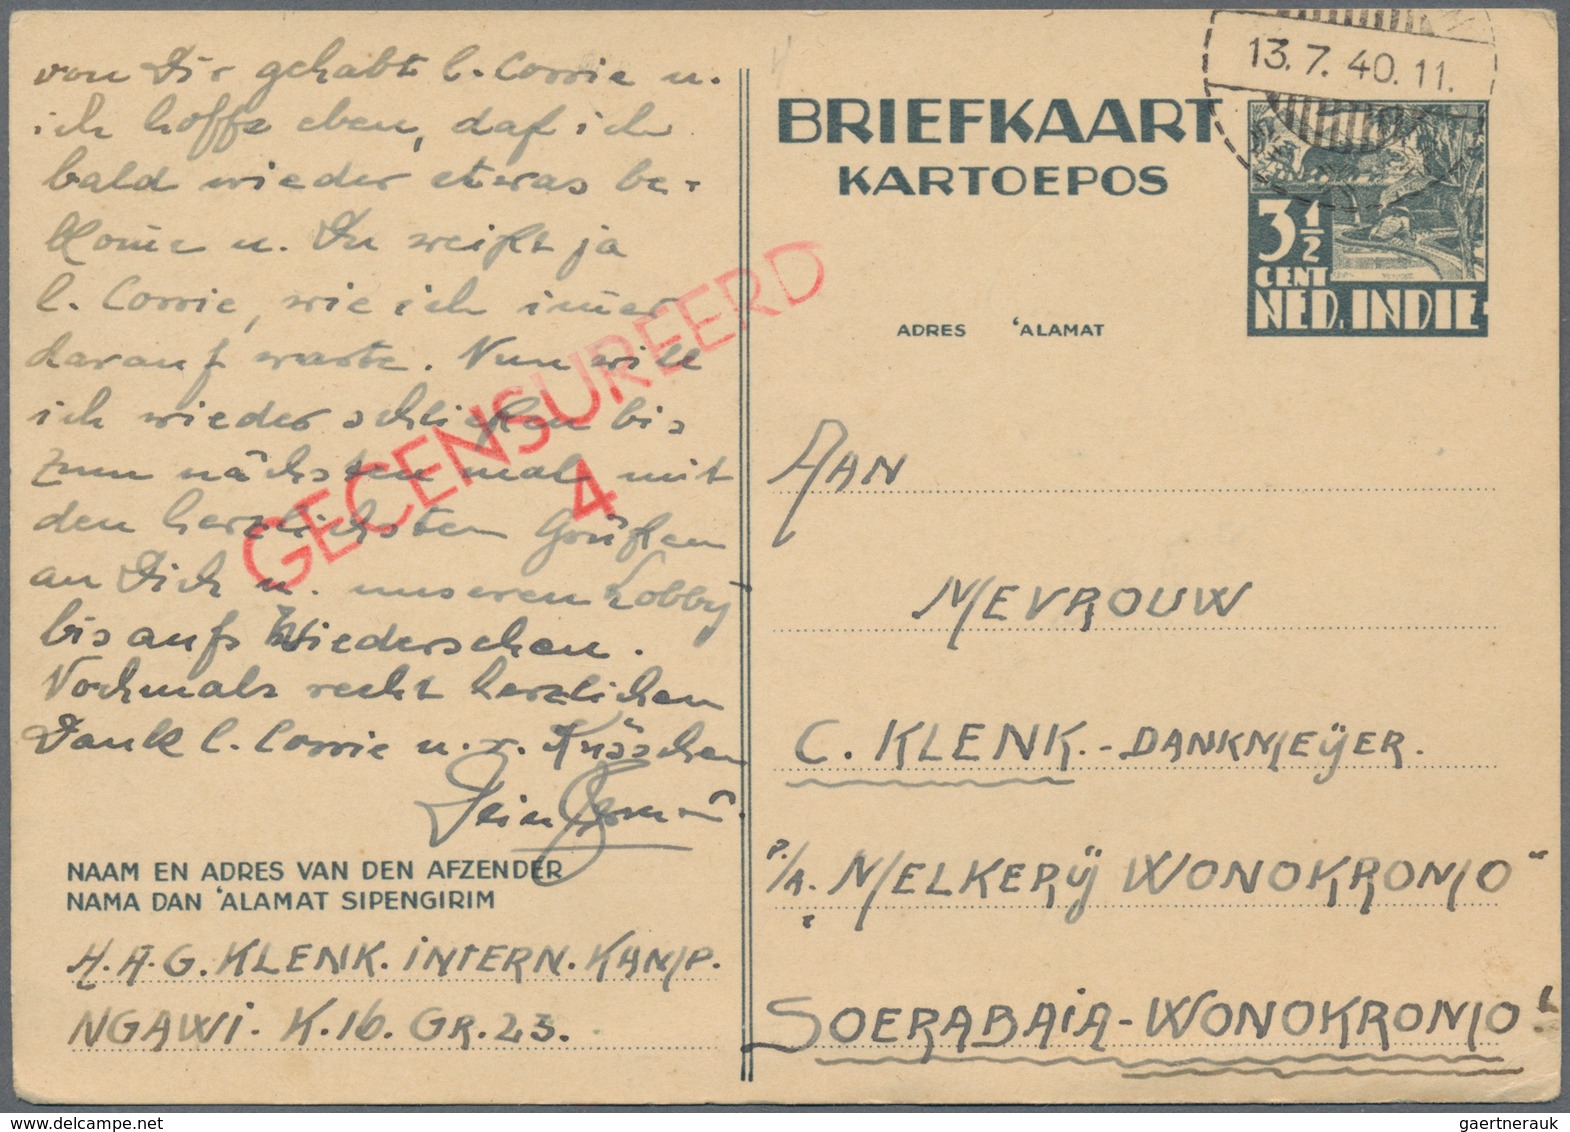 von Dir gehabt l. Corrie u.
ich hoffe eben, daß ich
bald wieder etwas be-
kom̄e u. Du weißt ja
l. Corrie, wie ich im̄er
darauf warte. Nun will
ich wieder schließen bis
zum nächsten mal mit
den herzlichsten Grüßen
an Dich u. unseren Lobby
bis aufs Wiedersehen.
Nochmals recht herzlichen
Dank l. Corrie u. r. Küsschen
Dein
GECENSUREERD
4
NAAM EN ADRES VAN DEN AFZENDER
NAMA DAN 'ALAMAT SIPENGIRIM
H.A.G. KLENK. INTERN. KAMP.
NGAWI. K.16. GR.23.
13.7.40.11.
BRIEFKAART
KARTOEPOS
3½
CENT
NED. INDIE
ADRES 'ALAMAT
AAN
MEVROUW
C. KLENK.-DANKMEŸER.
P/A. MELKERŸ WONOKROMO"
SOERABAIA-WONOKROMO!
gaertnerauk@delcampe.net